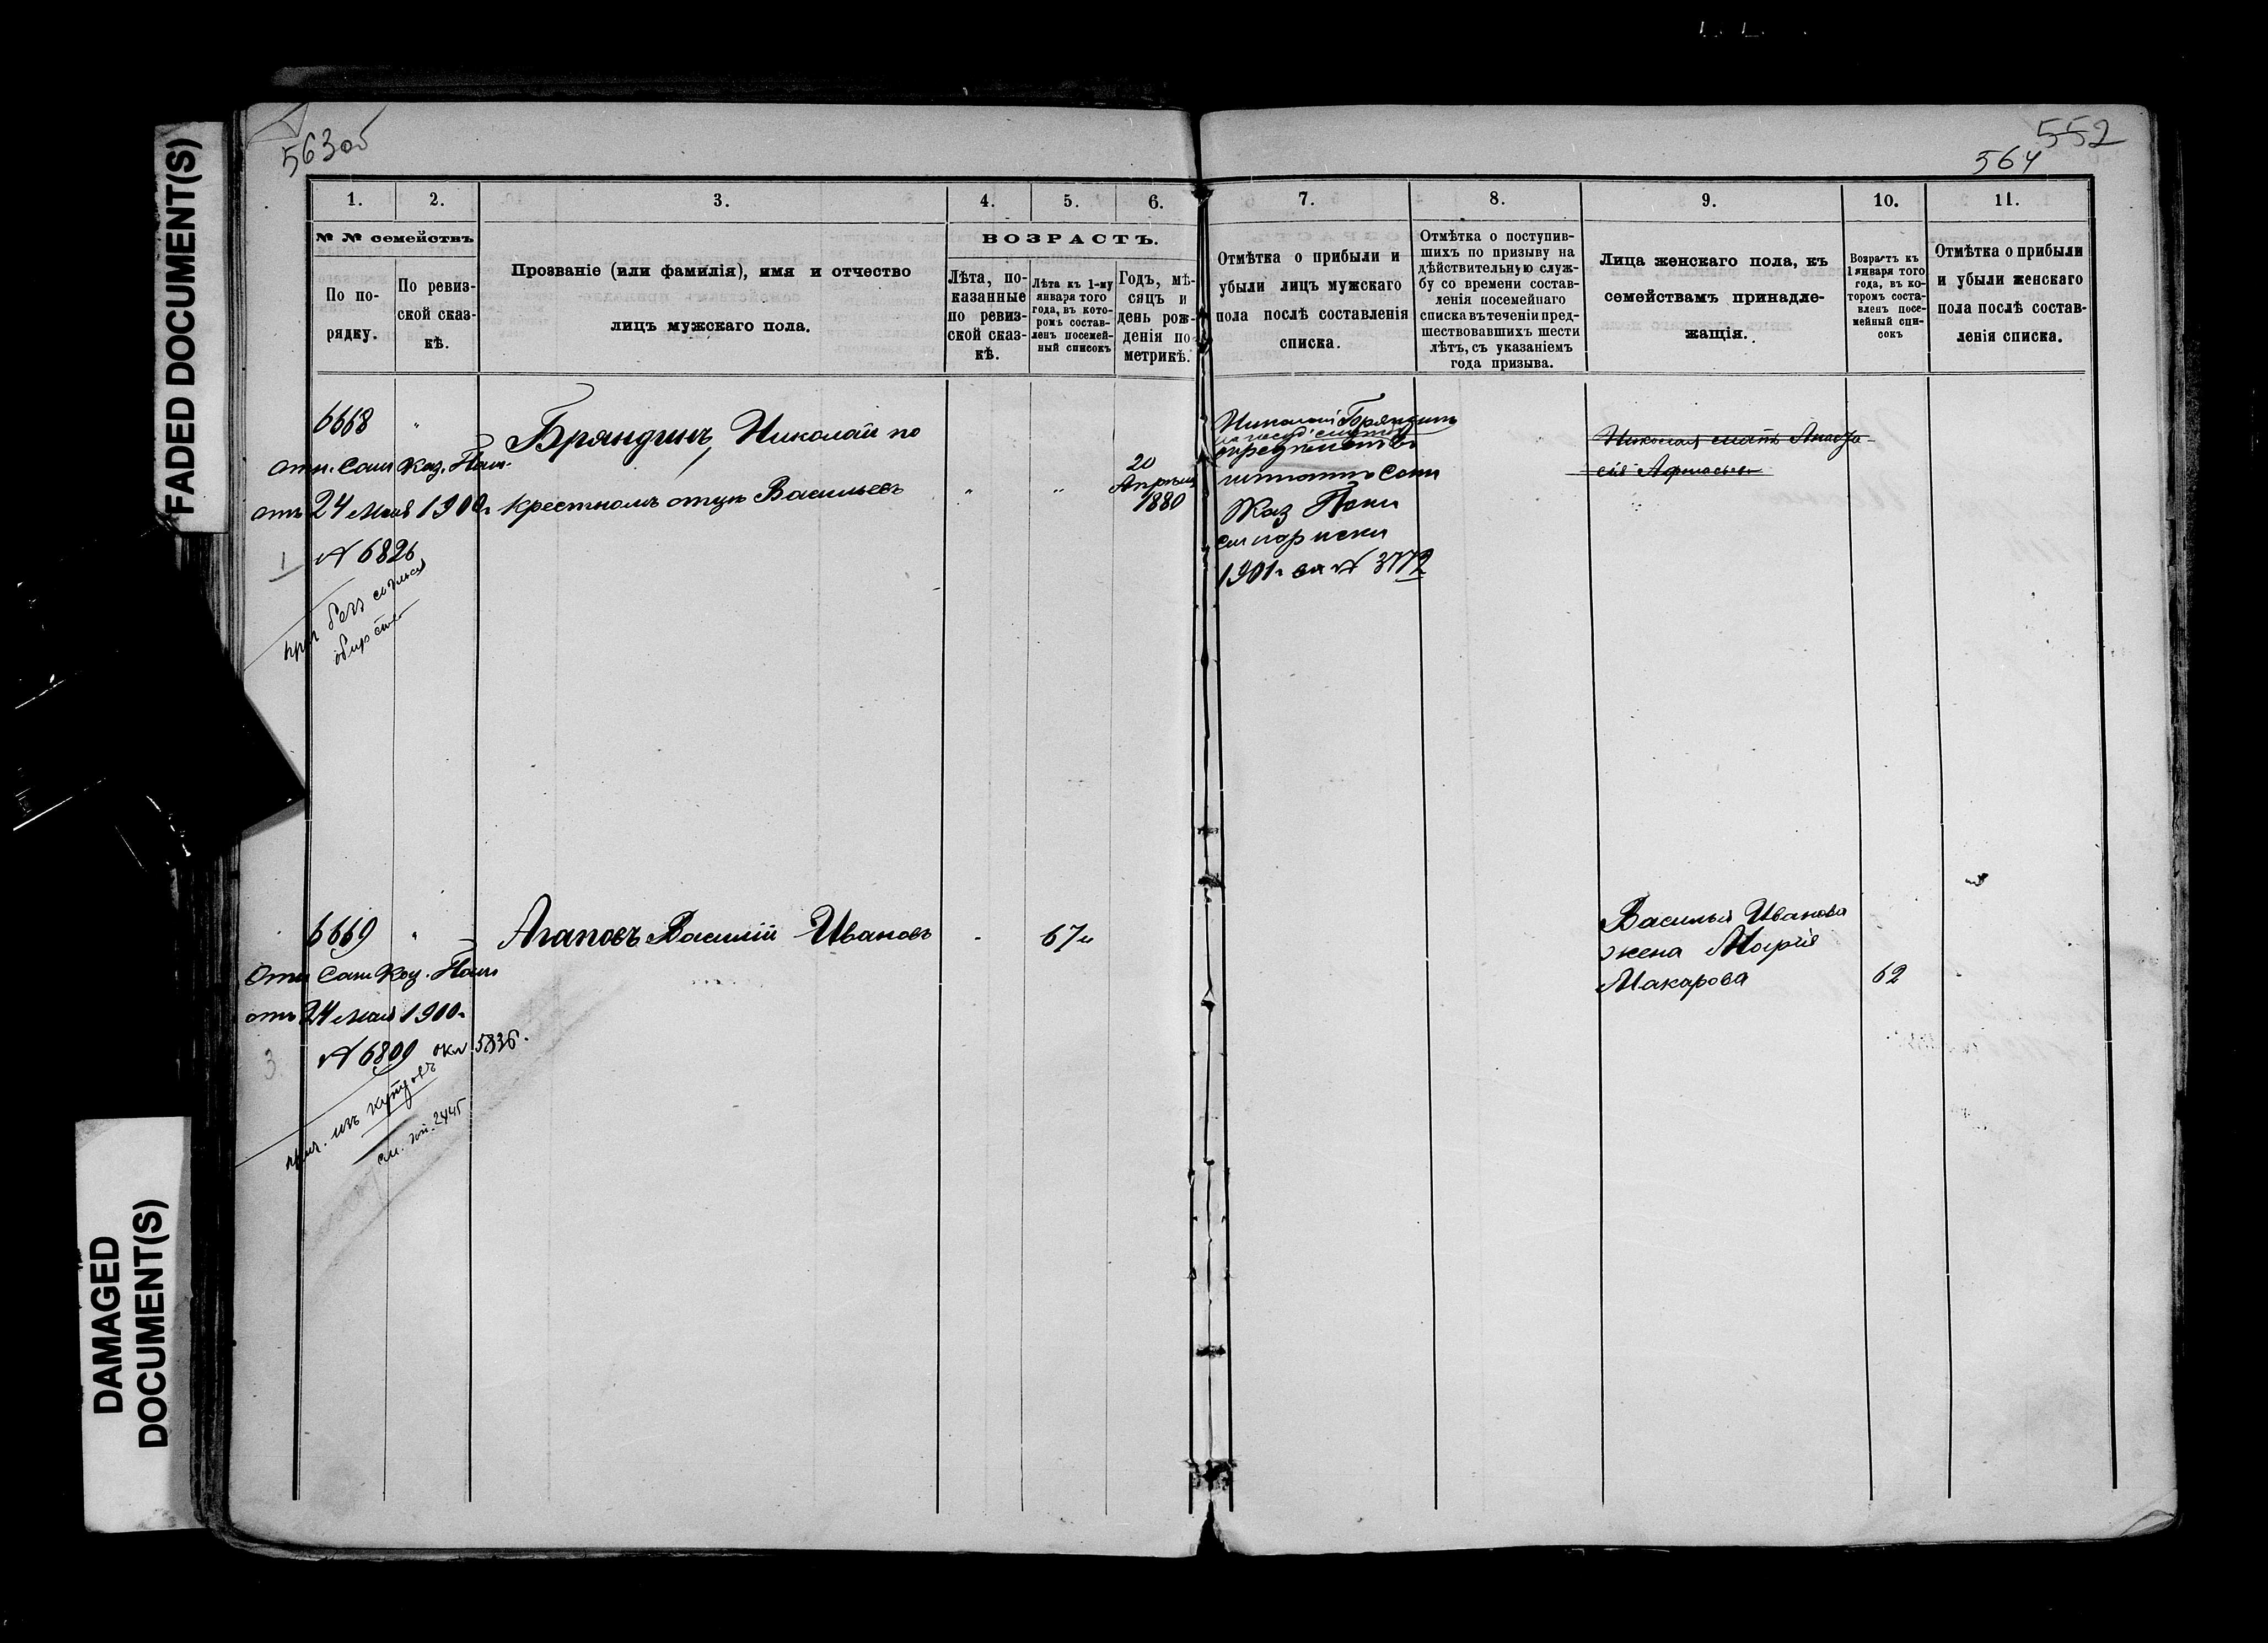 FAILED DOCUMENT(S)
DAMAGED
DOCUMENT(S)
563об
552
564
1.
2.
3.
4.
5.
6.
№ № семействъ
По по-
рядку.
По ревиз-
ской сказ-
кѣ.
Прозваніе (или фамилія), имя и отчество
лицъ мужскаго пола.
ВОЗРАСТЪ.
Лѣта, по-
казанные
по ревиз-
ской сказ-
кѣ.
Лѣта къ 1-му
января того
года, въ кото-
ромъ состав-
ленъ посемей-
ный списокъ
Годъ, мѣ-
сяцъ и
день рож-
денія по
метрикѣ.
7.
8.
9.
10.
11.
Отмѣтка о прибыли и
убыли лицъ мужскаго
пола послѣ составленія
списка.
Отмѣтка о поступив-
шихъ по призыву на
дѣйствительную служ-
бу со времени состав-
ленія посемейнаго
списка въ теченіи пред-
шествовавшихъ шести
лѣтъ, съ указаніемъ
года призыва.
Лица женскаго пола, къ
семействамъ принадле-
жащія.
Возрастъ къ
1 января того
года, въ ко-
торомъ соста-
вленъ посе-
мейный спи-
сокъ
Отмѣтка о прибыли
и убыли женскаго
пола послѣ состав-
ленія списка.
6668 "
Отн. Сам Каз. Пал.
отъ 24 мая 1900г
1 № 6826
прич безъ согласія
общества
Бряндинъ, Николай по
крестномъ отцѣ Васильевъ
" "
20
Апрѣля
1880
Николай Бряндинъ
Каз Пал
1901г за № 3772
Николая мать Анаста
сія Афанасьева
6669 "
Отн Сам Каз. Пал
отъ 24 мая 1900г
3. № 6809 окл 5836.
прич. изъ купцовъ
см. 2445
Агаповъ Василій Ивановъ
67 и
Василья Иванова
жена Марія
Макарова
62